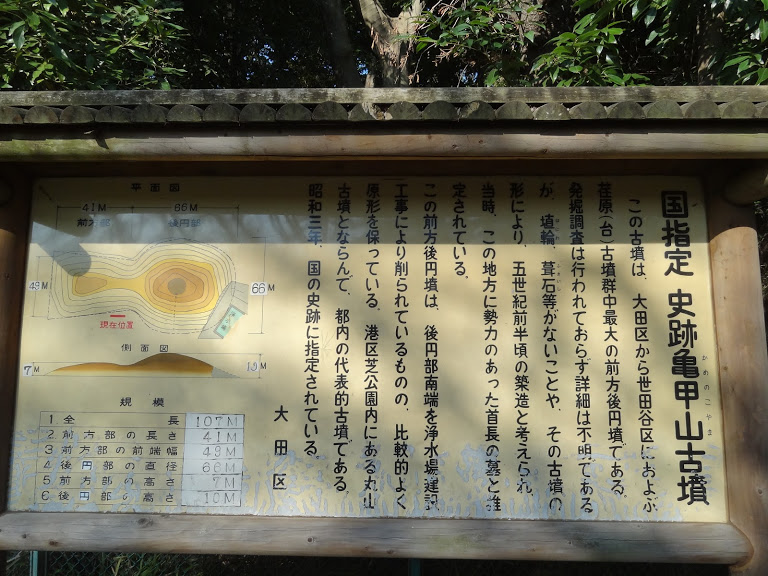 国指定 史跡亀甲山古墳
かめのこやま
この古墳は、大田区から世田谷区におよぶ
荏原(台)古墳群中最大の前方後円墳である。
発掘調査は行われておらず詳細は不明である
が、埴輪、葺石等がないことや、その古墳の
形により、五世紀前半頃の築造と考えられ、
当時、この地方に勢力のあった首長の墓と推
定されている。
この前方後円墳は、後円部南端を浄水場建設
工事により削られているものの、比較的よく
原形を保っている。港区芝公園内にある丸山
古墳とならんで、都内の代表的古墳である。
昭和三年、国の史跡に指定されている。
大田区
平面図
41M
66M
前方部
後円部
49M
66M
現在位置
側面図
7M
10M
規模
1 全長 107M
2 前方部の長さ 41M
3 前方部の前端幅 49M
4 後円部の直径 66M
5 前方部の高さ 7M
6 後円部の高さ 10M